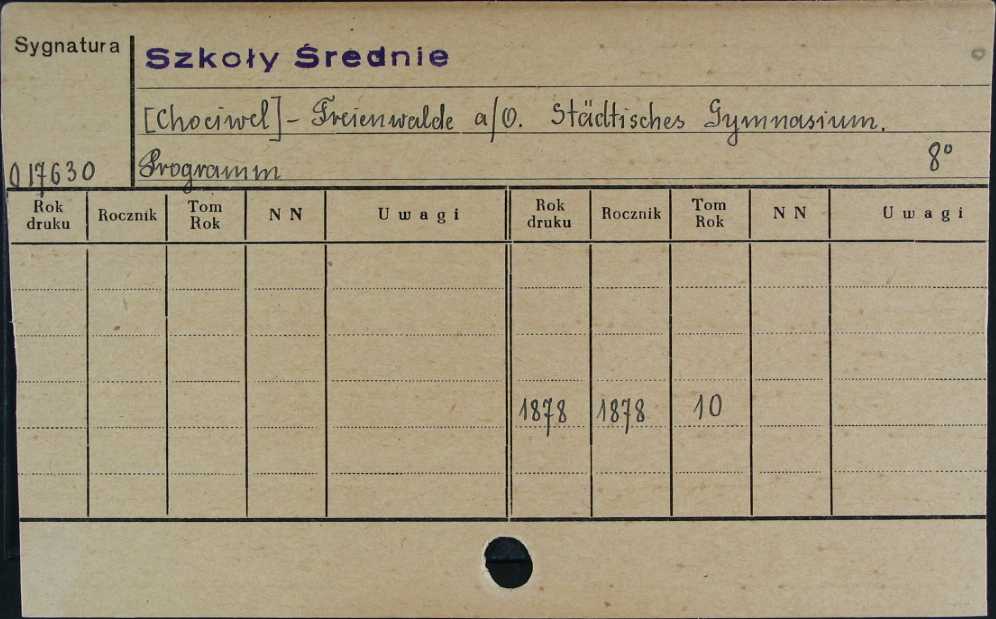 Sygnatura
Szkoły Średnie
[Chociwel] - Freienwalde a/O. Städtisches Gymnasium.
017630 Programm 8°
Rok druku Rocznik Tom Rok N N Uwagi Rok druku Rocznik Tom Rok N N Uwagi
1878 1878 10